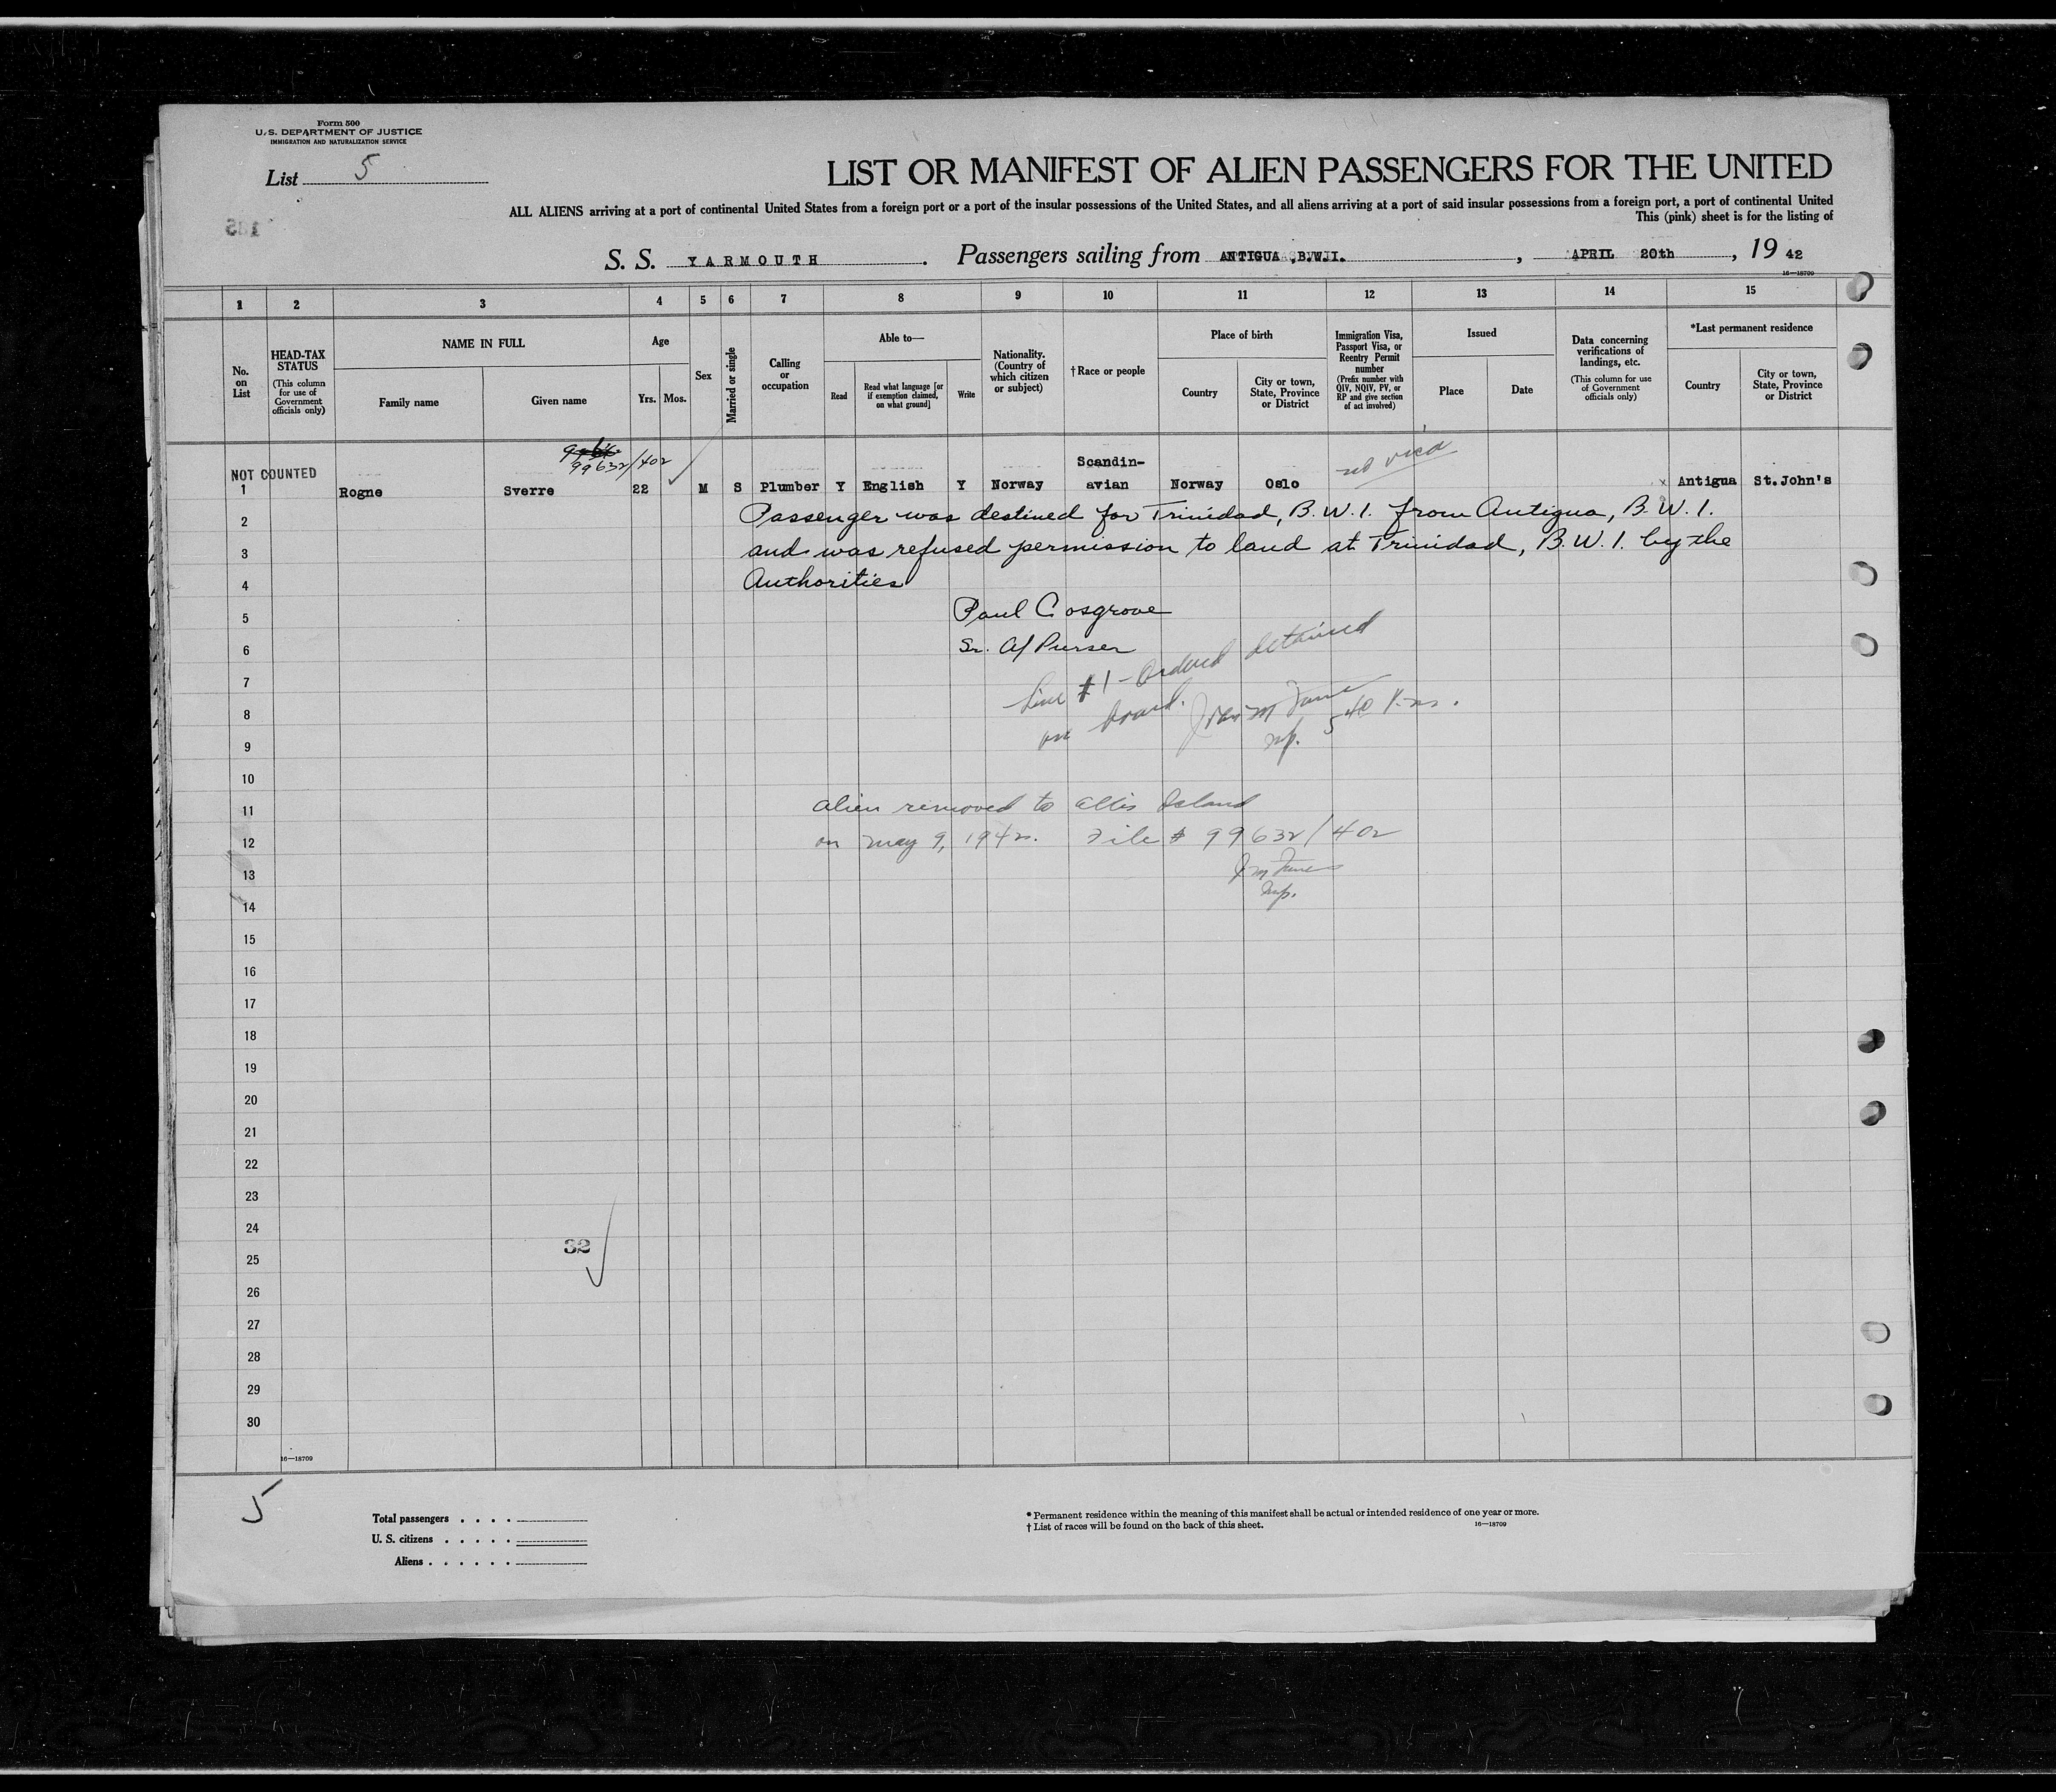 Form 500
U. S. DEPARTMENT OF JUSTICE
IMMIGRATION AND NATURALIZATION SERVICE
List 5
LIST OR MANIFEST OF ALIEN PASSENGERS FOR THE UNITED
ALL ALIENS arriving at a port of continental United States from a foreign port or a port of the insular possessions of the United States, and all aliens arriving at a port of said insular possessions from a foreign port, a port of continental United
This (pink) sheet is for the listing of
S. S. YARMOUTH . Passengers sailing from ANTIGUA ,B.W.I. , APRIL 20th , 19 42
16—18709
1 2 3 4 5 6 7 8 9 10 11 12 13 14 15
No. on List
HEAD-TAX STATUS (This column for use of Government officials only)
NAME IN FULL
Family name
Given name
Age
Yrs. Mos.
Sex
Married or single
Calling or occupation
Able to—
Read
Read what language [or if exemption claimed, on what ground]
Write
Nationality. (Country of which citizen or subject)
†Race or people
Place of birth
Country
City or town, State, Province or District
Immigration Visa, Passport Visa, or Reentry Permit number (Prefix number with QIV, NQIV, PV, or RP and give section of act involved)
Issued
Place
Date
Data concerning verifications of landings, etc. (This column for use of Government officials only)
*Last permanent residence
Country
City or town, State, Province or District
99632/402
NOT COUNTED
1 Rogne Sverre 22 M S Plumber Y English Y Norway Scandin-avian Norway Oslo no visa x Antigua St.John's
2 Passenger was destined for Trinidad, B.W.I. from Antigua, B.W.I.
3 and was refused permission to land at Trinidad, B.W.I. by the
4 Authorities
5 Paul Cosgrove
6 Sr. A/Purser
7 Line #1 - Ordered detained
8 on board.
9 Insp. 5 40 P.m.
10
11 Alien removed to Ellis Island
12 on May 9, 1942. File # 99632/402
13
14 Insp.
15
16
17
18
19
20
21
22
23
24
32
25
26
27
28
29
30
16—18709
5
Total passengers . . . .
U. S. citizens . . . . .
Aliens . . . . . .
* Permanent residence within the meaning of this manifest shall be actual or intended residence of one year or more.
† List of races will be found on the back of this sheet.
16—18709